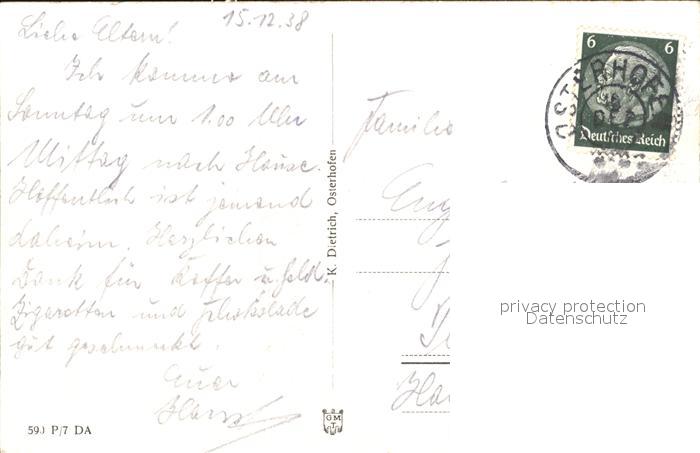 15.12.38
Liebe Eltern!
Ich komme am
Sonntag um 1.00 Uhr
Mittag nach Hause.
Hoffentlich ist jemand
daheim. Herzlichen
Dank für Koffer u. Geld.
Zigaretten und Schokolade
gut geschmeckt.
Euer
590 P/7 DA
K. Dietrich, Osterhofen
GM
Familie
6 6
Deutsches Reich
OSTERHOFE
privacy protection
Datenschutz